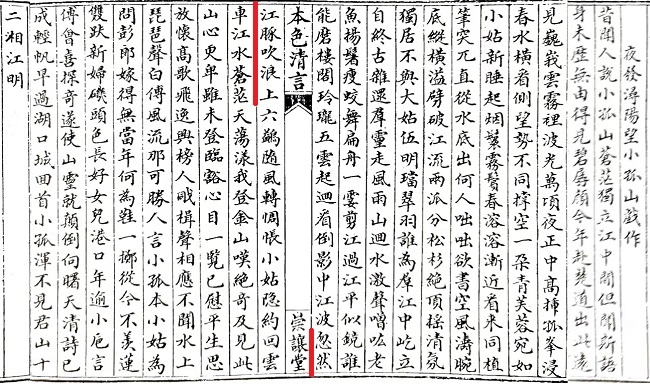 夜發潯陽望小孤山戲作
昔聞人說小孤山蒼茫獨立江中間但聞所語
身未歷無由得見碧孱顏今年赴楚道出此遠
見巍峩雲霧裡波光萬頃夜正中高揷孤峯浸
春水橫看側望勢不同撐空一朶青芙蓉宛如
小姑新睡起烟鬟霧鬢春溶溶漸近看来同植
筆突兀直從水底出何人咄咄欲書空風濤腕
底縱橫溢劈破江流兩派分松杉絕頂搖清氛
獨居不與大姑伍明璫翠羽誰為羣江中屹立
自終古雜遝羣靈走風雨山迴水激聲噌吰老
魚揚鬐瘦蛟舞扁舟一霎剪江過江平似鏡誰
能磨樓閣玲瓏五雲起迴看倒影中江波忽然
本色清言 四 崇讓堂
江豚吹浪上六鷁隨風轉惆悵小姑隱約回雲
車江水蒼茫天蕩漾我登金山嘆絕奇及見此
山心更卑雖未登臨豁心目一覽已慰平生思
放懷高歌飛逸興榜人戢楫聲相應不聞水上
琵琶聲白傅風流那可勝人言小孤本小姑為
問彭郎嫁得無當年何為鞋一擲從今不羨蓮
雙趺新婦磯頭色長好女兒港口年逾小卮言
傅會喜探奇遂使山靈就顛倒向曙天清詩已
成輕帆早過湖口城回首小孤渾不見君山十
二湘江明